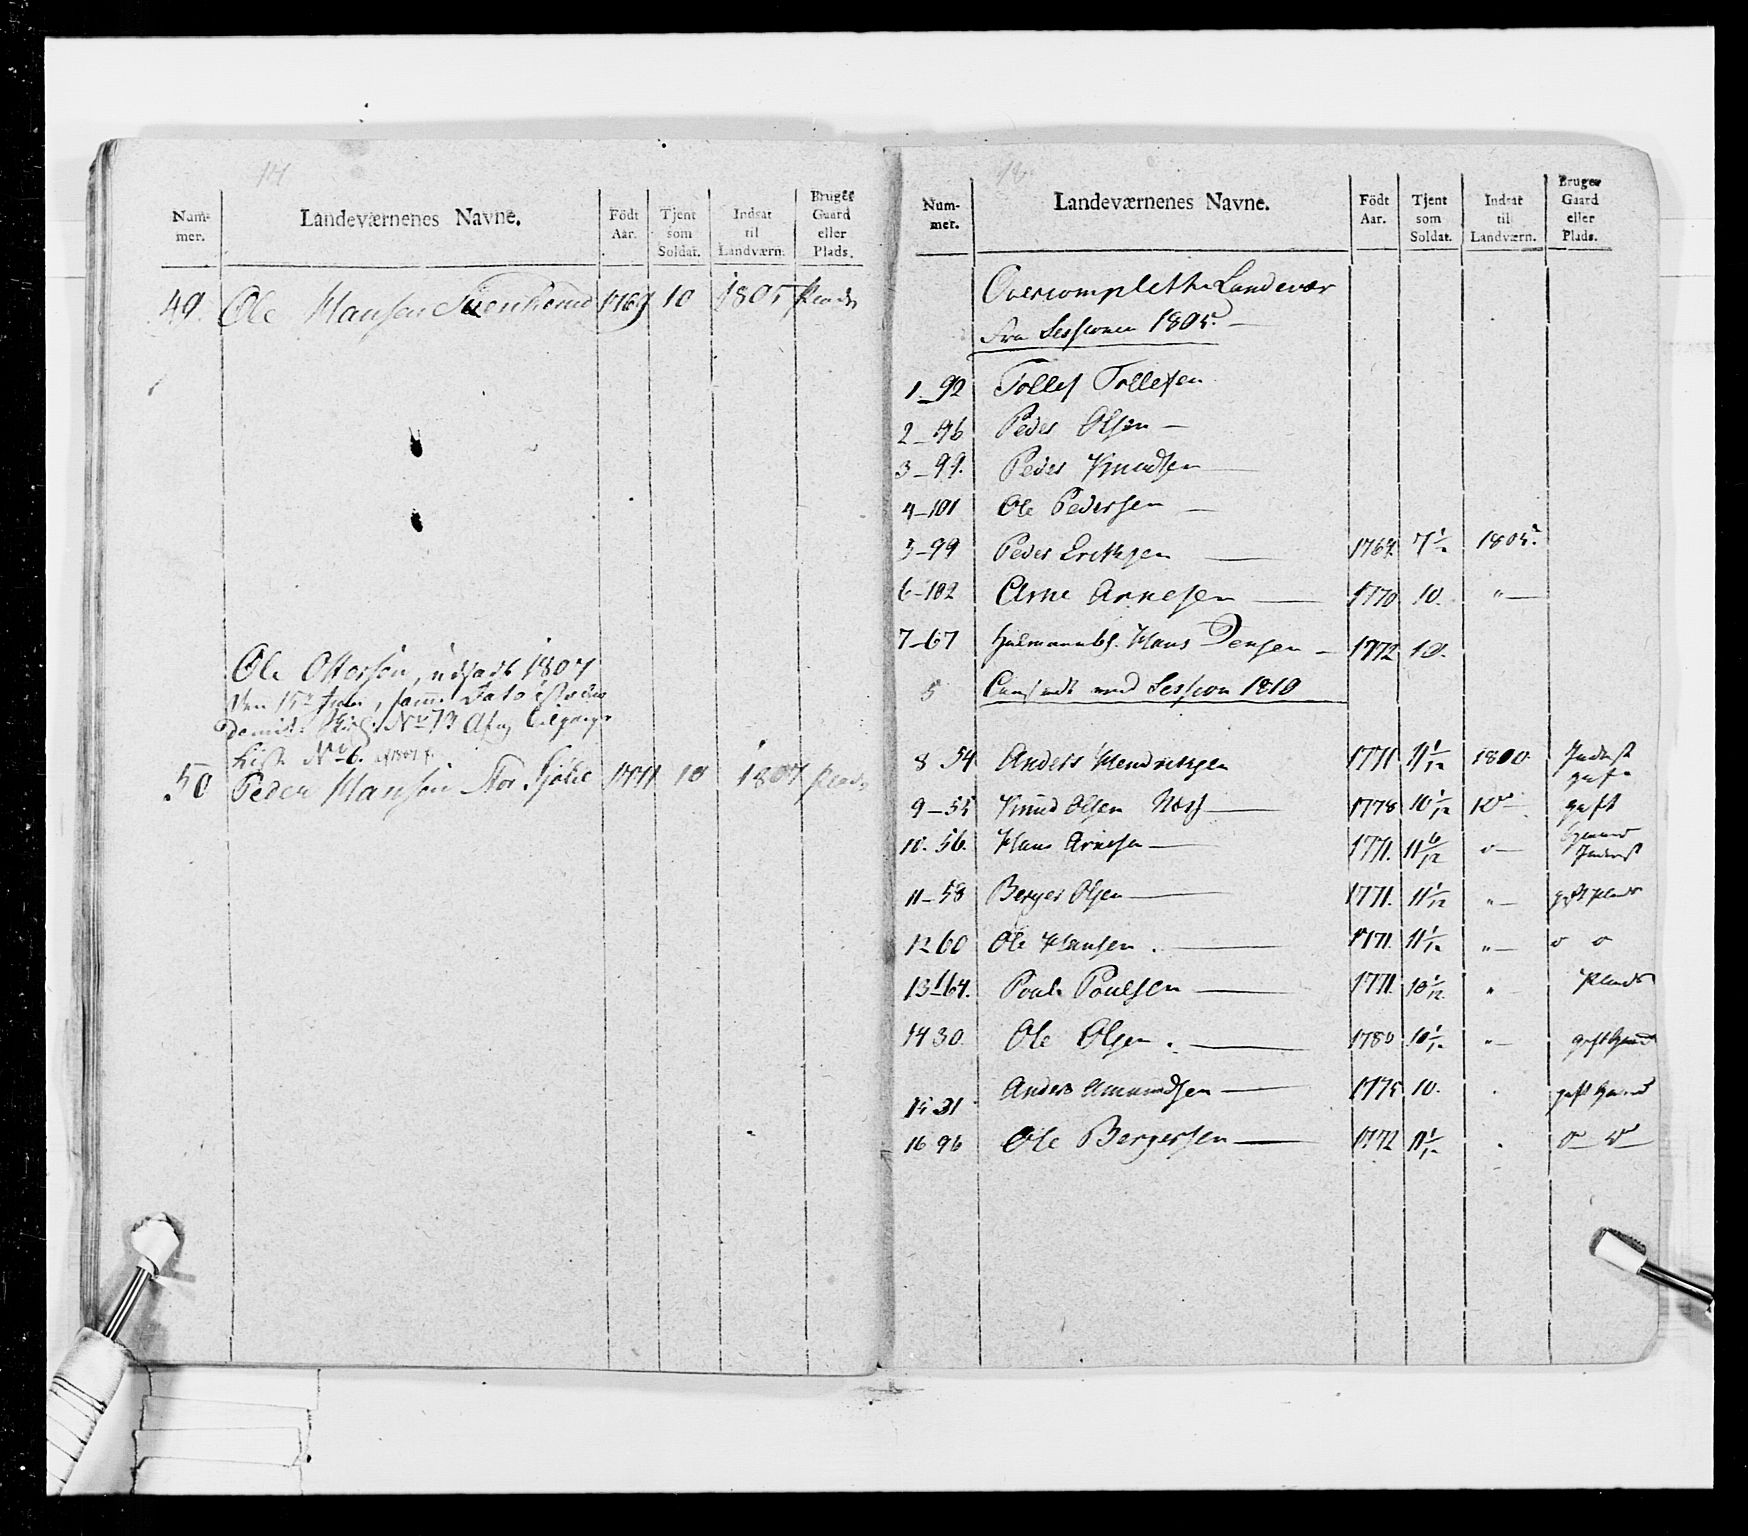 14
Num-
mer.
Landeværnenes Navne.
Födt
Aar.
Tjent
som
Soldat.
Indsat
til
Landværn.
Bruger
Gaard
eller
Plads.
49. Ole Hansen 1769 10 1805 Plads
Ole Ottersen, udsadt 1807
No 73 Afg
List No 6.
50 Peder Hansen 1771 10 1807 Plads
18
Num-
mer.
Landeværnenes Navne.
Födt
Aar.
Tjent
som
Soldat.
Indsat
til
Landværn.
Bruger
Gaard
eller
Plads.
Overcomplette Landevær
Fra Sessionen 1805.
1-92 Tollef Tollefsen
2-96 Peder Olsen
3-99. Peder Knudsen
4-101 Ole Pedersen
5-99 Peder Erichsen 1767. 7 1/12 1805.
6-102 Arne Arnesen 1770 10. "
7-67 Hans Jensen 1772 10.
5 ved Session 1810
8 54 Anders Hendrichsen 1771 11 1/12 1800. Inderst
gift
9-55 Knud Olsen 1778 10 1/12 do gift
10. 56. Hans Arnesen 1771. 11 6/12 Inderst
11-58 Berger Olsen 1771. 11 1/12 " gift Plads
12 60 Ole Hansen. 1771. 11 1/12 "
13-64. Poul Poulsen 1771. 10 1/12 " Plads
14 30. Ole Olsen. 1780 10 1/12 " gift
15 31 Anders Amundsen 1775 10. gift
16 96 Ole Bergersen 1772 11 1/12